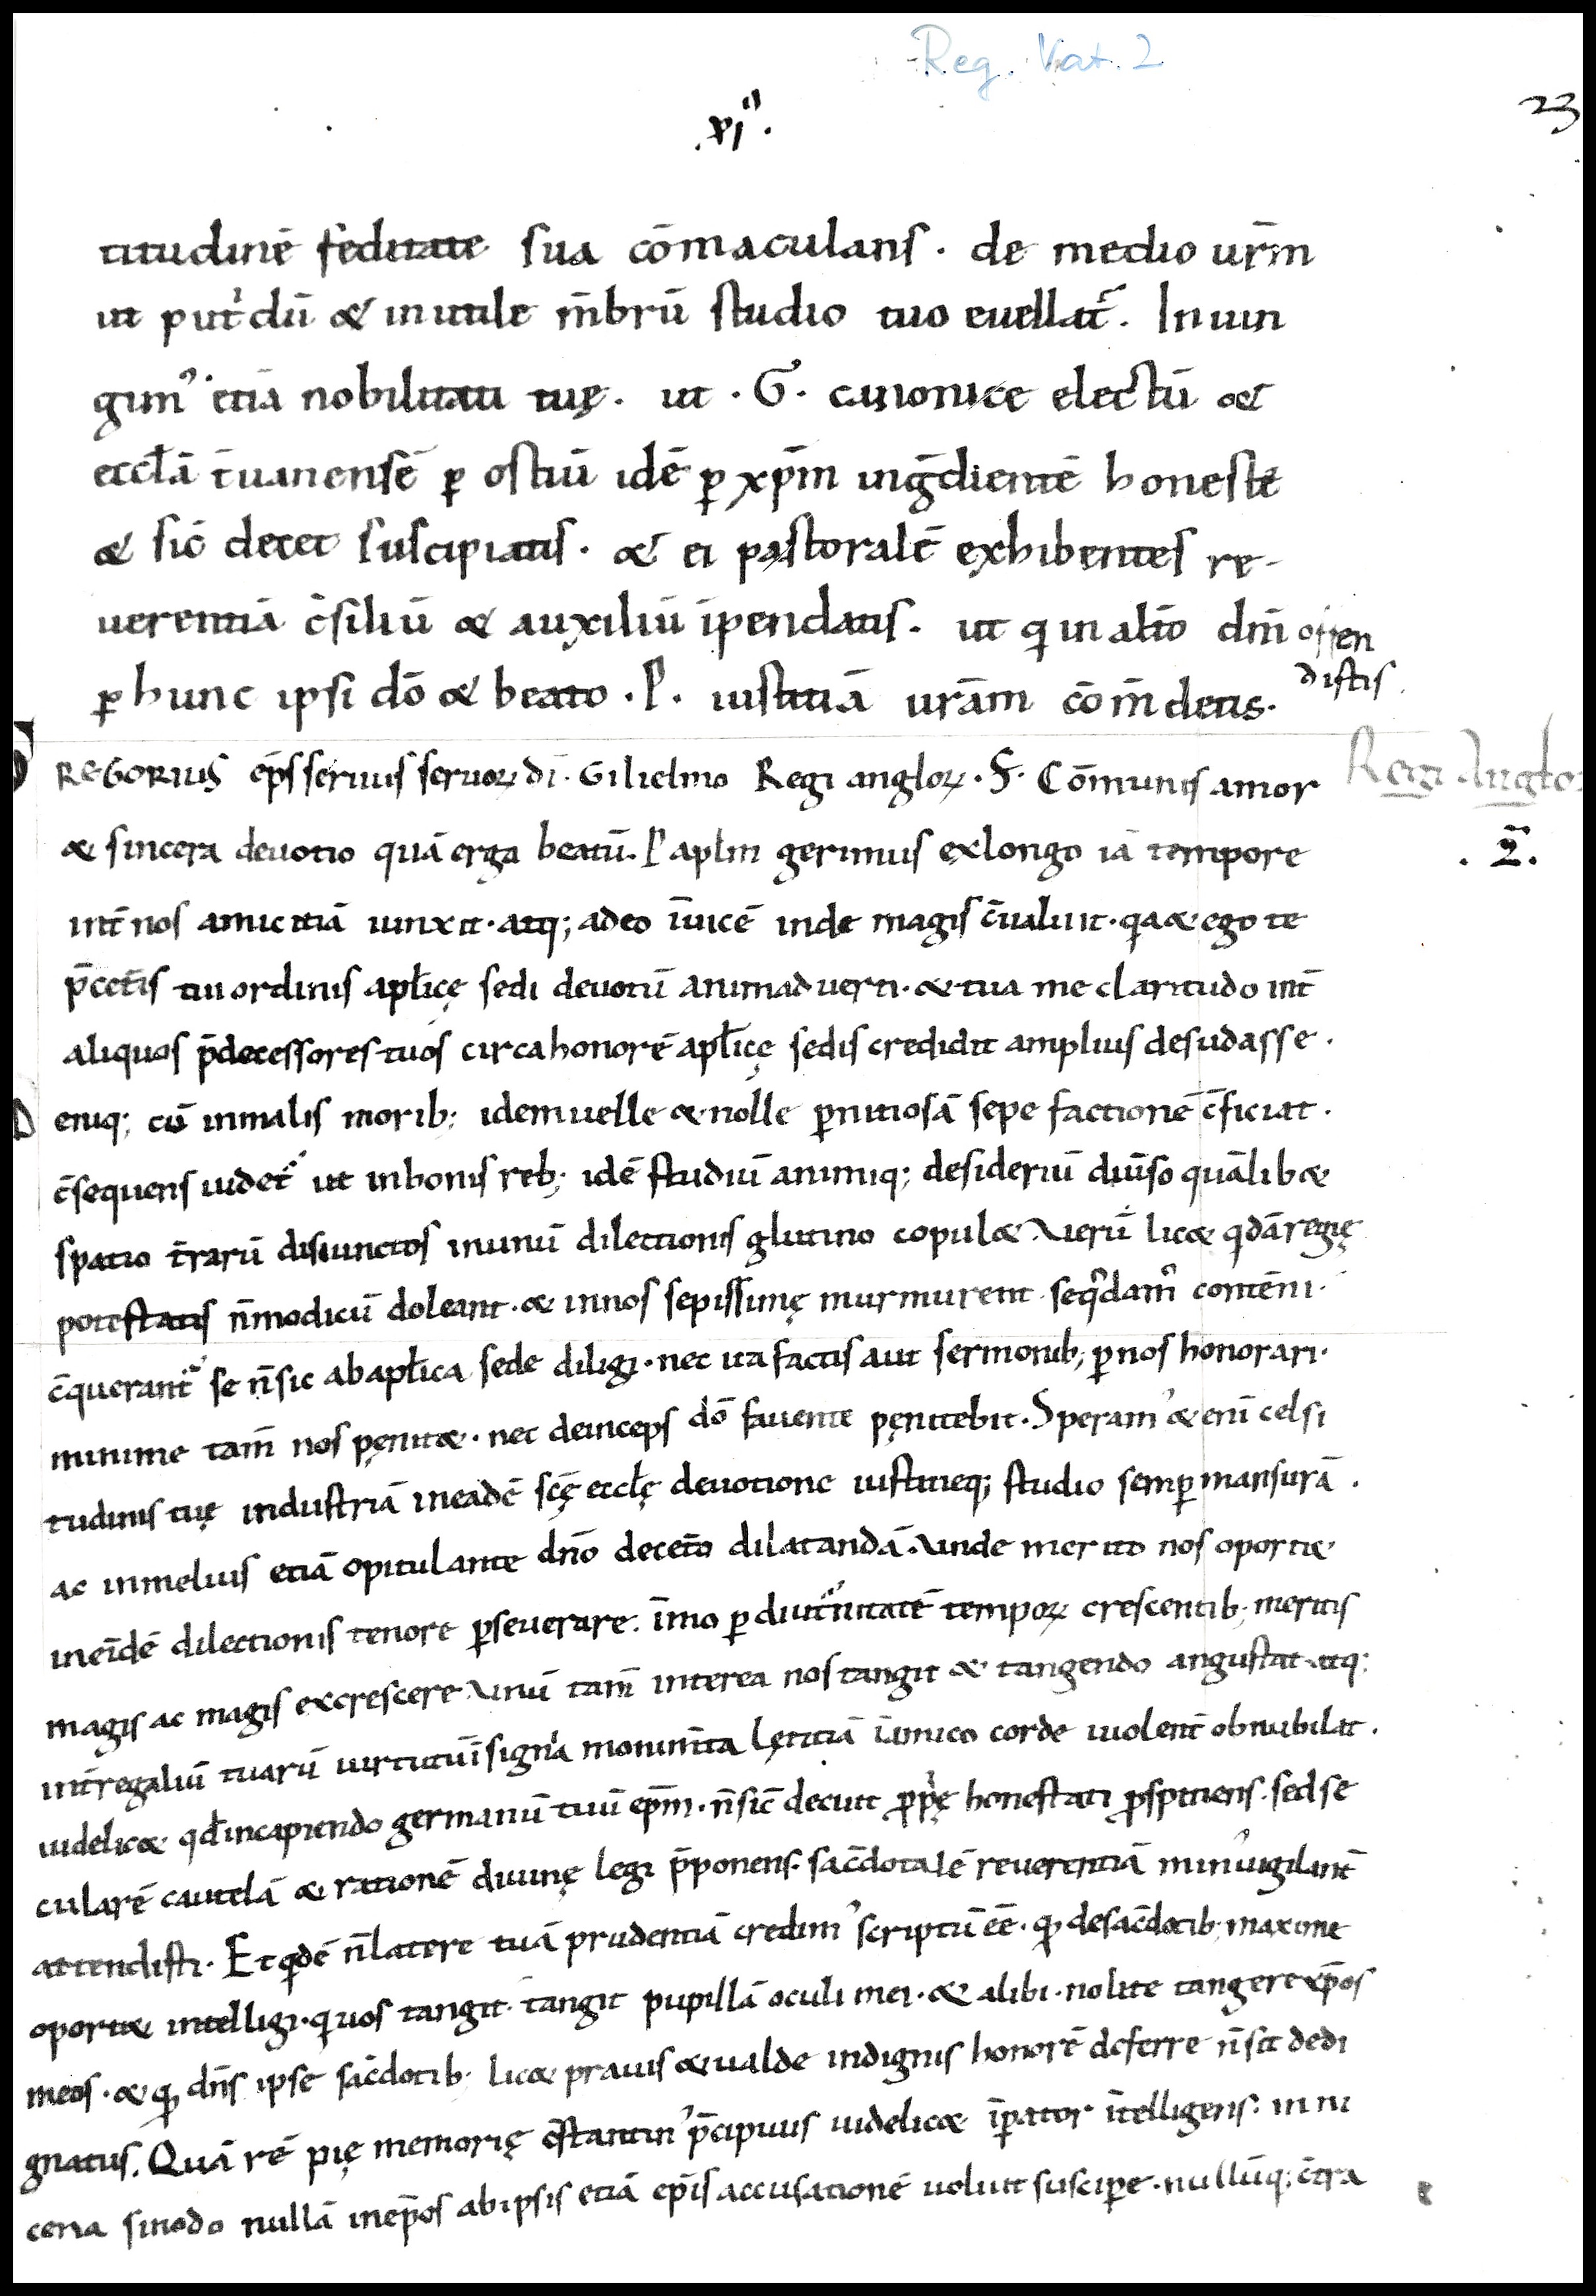 Reg. Vat. 2
23
.xi͞.
titudinē feditate sua cōmaculans . de medio ur̄m
ut put'dū & inutile m̄brū studio tuo euellat̄ . Iniun
gim' etiā nobilitati tuę . ut . G . canonice electū &
eccl̄ā t̄uanensē ꝑ ostiū idē ꝑ xp̄m inḡdientē honeste
& sic̄ decet suscipiatis . & ei pastoralē exhibentes re-
uerentiā c̄siliū & auxiliū īpendatis . ut q in alt̄o dn̄i offen
distis .
ꝑ hunc ipsi dō & beato . P . iustitiā ur̄am cōm̄detis .
GREGORIUS ep̄s seruus seruoꝝ dī . Gilielmo Regi angloꝝ . S . Cōmunis amor
Regi Anglo
& sincera deuotio quā erga beatū . P apl̄m gerimus ex longo iā tempore
. 2̄ .
int̄ nos amicitiā iunxit . atq; adeo īuicē inde magis c̄ualuit . qa & ego te
p̄ cet̄is tui ordinis apl̄icę sedi deuotū animaduerti . & tua me claritudo int̄
aliquos p̄decessores tuos circa honorē apl̄icę sedis credidit amplius desudasse .
Deniq; cū in malis morib; idem uelle & nolle ꝑnitiosā sepe factionē c̄ficiat .
c̄sequens uidet̄ ut in bonis reb; idē studiū animiq; desideriū diūso quālib&
spatio t̄rarū disiunctos in unū dilectionis glutino copul& . Verū lic& qdā regię
potestatis n̄ modicū doleant . & in nos sepissimę murmurent . se q'dam' contēni .
c̄querant̄ se n̄ sic ab apl̄ica sede diligi . nec ita factis aut sermonib; ꝑ nos honorari .
minime tam̄ nos pęnit& . nec deinceps dō fauente pęnitebit . Speram' & enī celsi
tudinis tuę industriā in eadē scę̄ eccl̄ę deuotione iustitieq; studio semꝑ mansurā .
ac in melius etiā opitulante dn̄o decet̄o dilatandā . Vnde merito nos oport&
in eīdē dilectionis tenore ꝑseuerare . īmo ꝑ diut̄nitatē tempoꝝ crescentib; meritis
magis ac magis excrescere . Vnū tam̄ interea nos tangit & tangendo angustat . atq;
int̄ regaliū tuarū uirtutū īsignia monim̄ta lętitiā ī amico corde uiolent̄ obnubilat .
uidelic& qd̄ in capiendo germanū tuū ep̄m . n̄ sic̄ decuit ꝓp̄ę honestati ꝓspitiens . sed se
cularē cautelā & rationē diuinę legi p̄ponens . sac̄dotalē reuerentiā min' uigilant̄
attendisti . Et qdē n̄ latere tuā prudentiā credim' scriptū ēē . qd desac̄dotib; maxime
oport& intelligi . q uos tangit . tangit pupillā oculi mei . & alibi . nolite tangere xp̄os
meos . & qd dn̄s ipse sac̄dotib; lic& prauis & ualde indignis honorē deferre n̄ sit dedi
gnatus . Quā rē pię memorię c̄stantin' p̄cipuus uidelic& īꝑator ītelligens . in ni
cena sinodo nullā in ep̄os ab ipsis etiā ep̄is accusationē uoluit susciꝑe . nullūq; c̄tra